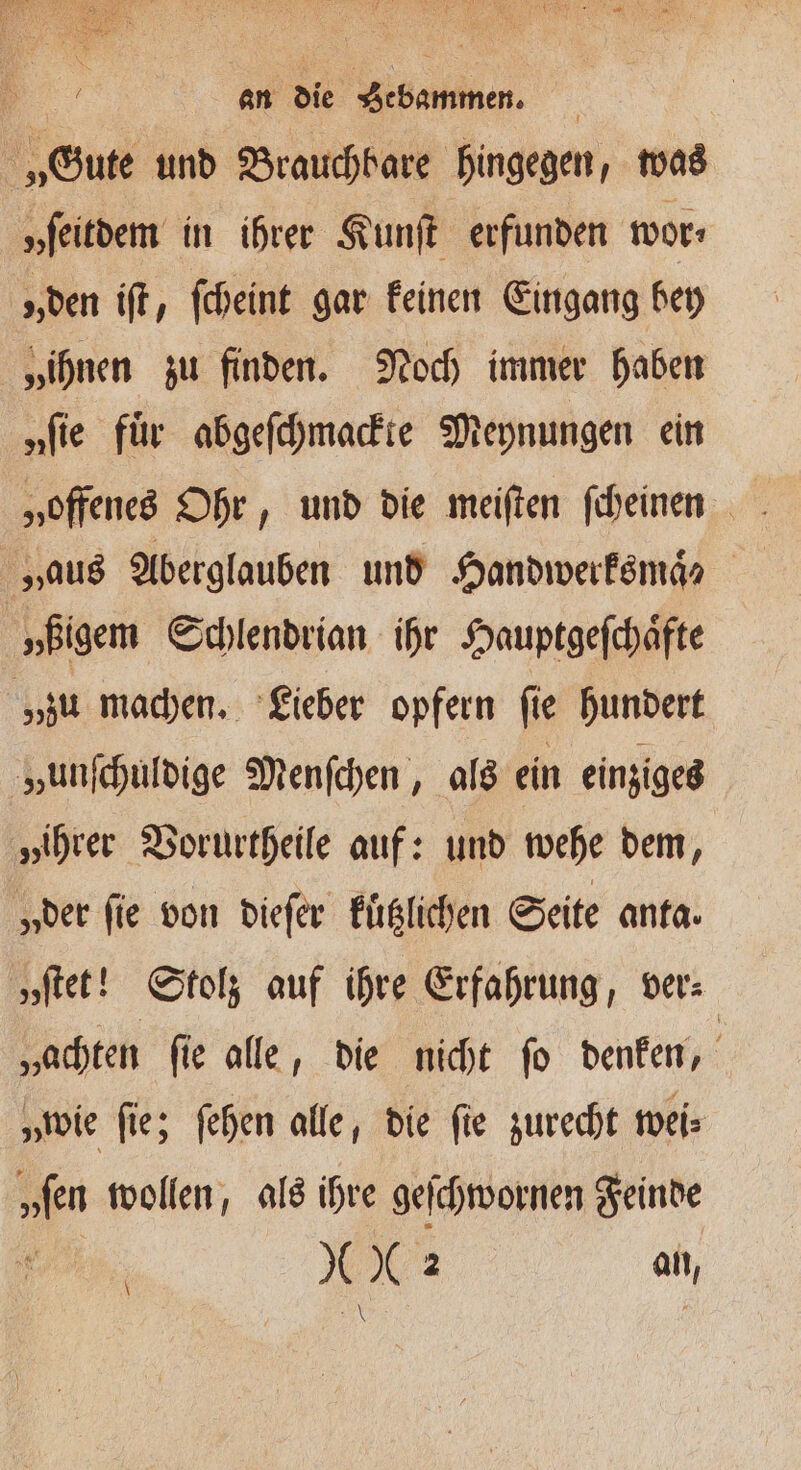 an die Hebammen.
„Gute und Brauchbare hingegen, was
„ſeitdem in ihrer Kunſt erfunden wor⸗
„den iſt, ſcheint gar keinen Eingang bey
„ihnen zu finden. Noch immer haben
„ſie fuͤr abgeſchmackte Meynungen ein
„offenes Ohr, und die meiſten ſcheinen
„aus Aberglauben und Handwerksmaͤ⸗
„ßigem Schlendrian ihr Hauptgeſchaͤfte
„zu machen. Lieber opfern ſie hundert
„unſchuldige Menſchen, als ein einziges
„ihrer Vorurtheile auf: und wehe dem,
„der ſie von dieſer kuͤtzlichen Seite anta⸗
„ſtet! Stolz auf ihre Erfahrung, ver⸗
„achten ſie alle, die nicht ſo denken,
„wie ſie; ſehen alle, die ſie zurecht wei⸗
„ſen wollen, als ihre geſchwornen Feinde
)( )( 2 an,